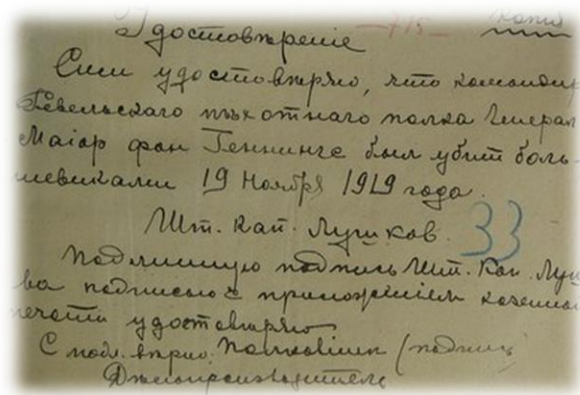 715
Копія
Удостовѣреніе
Симъ удостовѣряю, что командир
Ревельскаго пѣхотнаго полка Генерал
Маіор фон Геннингс был убит боль-
шевиками 19 Ноября 1919 года.
Шт. Кап. Лушков.
33
Подлинную подпись Шт. Кап. Луш
ва подписью с приложеніем казенной
печати удостовѣряю
С подл. вѣрно. Полковник (подпись
Дѣлопроизводитель